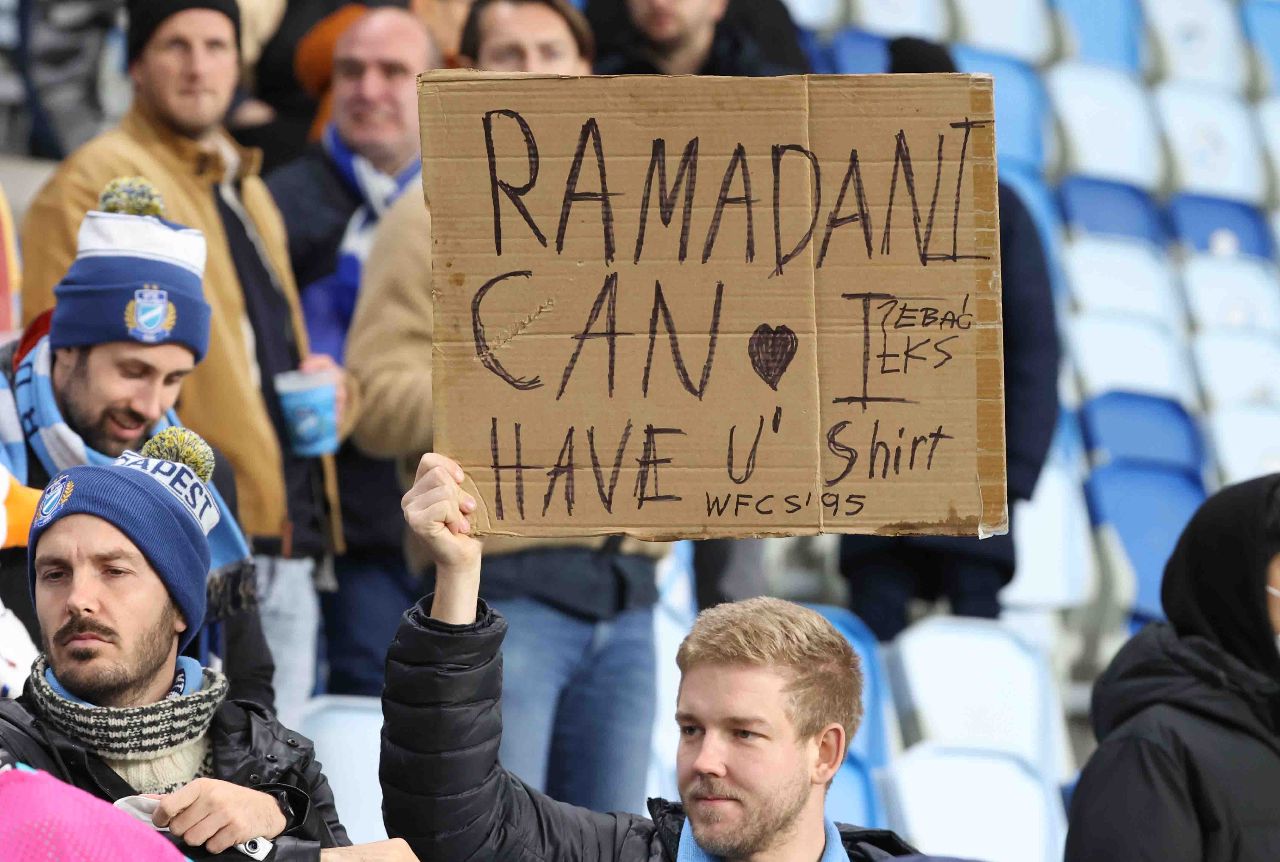 RAMADANI
CAN ♥ I
HAVE U' Shirt
WFCS'95
APEST